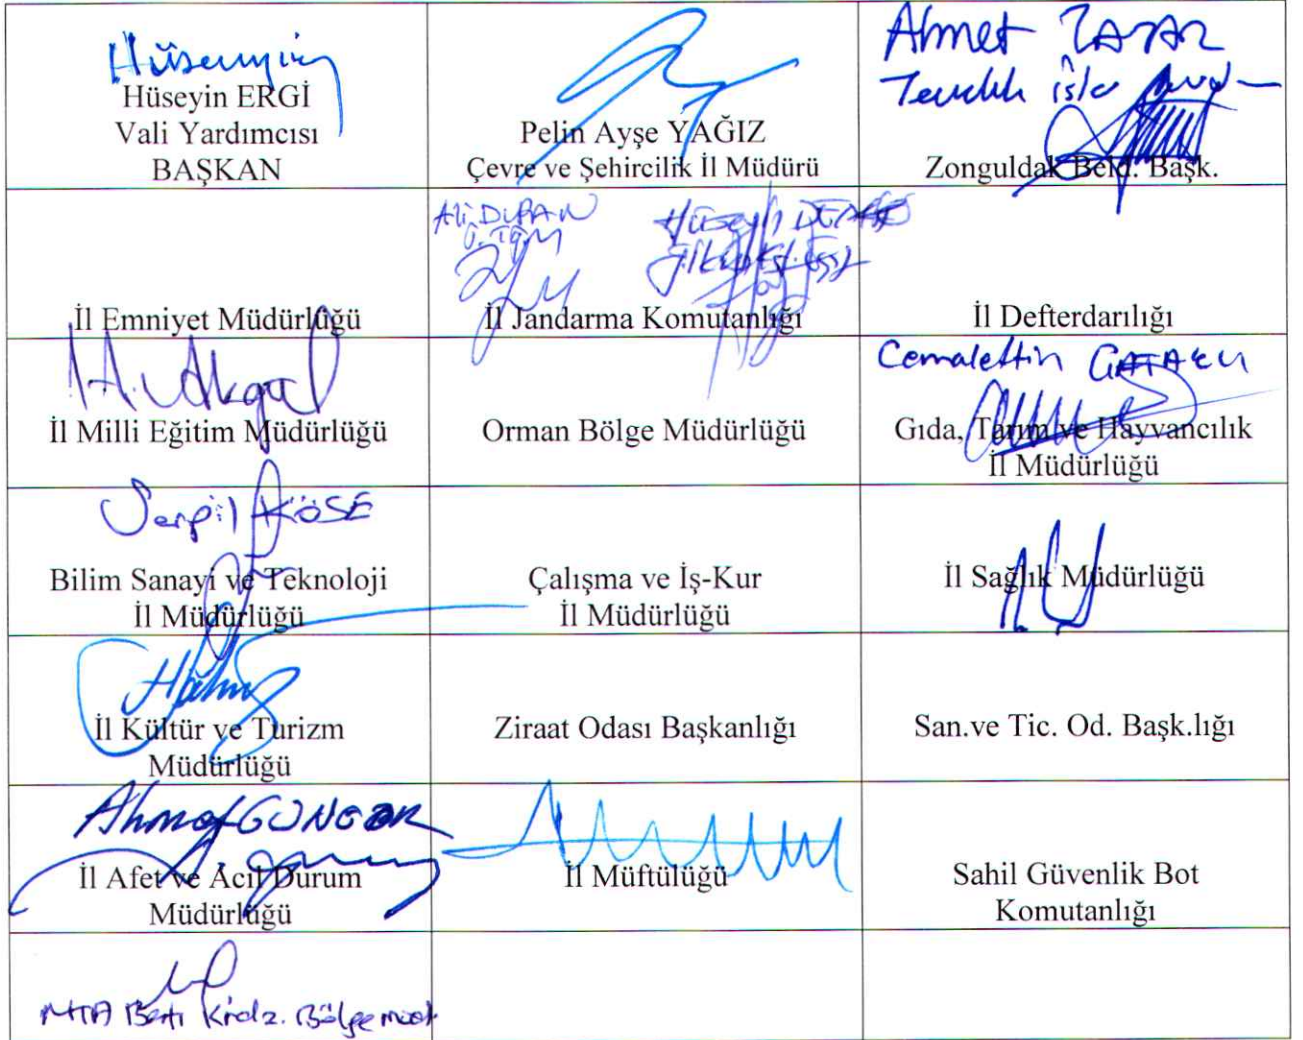 Hüseyin
Hüseyin ERGİ
Vali Yardımcısı
BAŞKAN
Pelin Ayşe YAĞIZ
Çevre ve Şehircilik İl Müdürü
Ahmet
Zonguldak Beld. Başk.
İl Emniyet Müdürlüğü
Ali DURAN
Hüseyin
İl Jandarma Komutanlığı
İl Defterdarılığı
H. Akgül
İl Milli Eğitim Müdürlüğü
Orman Bölge Müdürlüğü
Cemalettin
Gıda, Tarım ve Hayvancılık
İl Müdürlüğü
Serpil KÖSE
Bilim Sanayi ve Teknoloji
İl Müdürlüğü
Çalışma ve İş-Kur
İl Müdürlüğü
İl Sağlık Müdürlüğü
İl Kültür ve Turizm
Müdürlüğü
Ziraat Odası Başkanlığı
San.ve Tic. Od. Başk.lığı
Ahmet GÜNGÖR
İl Afet ve Acil Durum
Müdürlüğü
İl Müftülüğü
Sahil Güvenlik Bot
Komutanlığı
MTA Batı Krdz. Bölge Müd